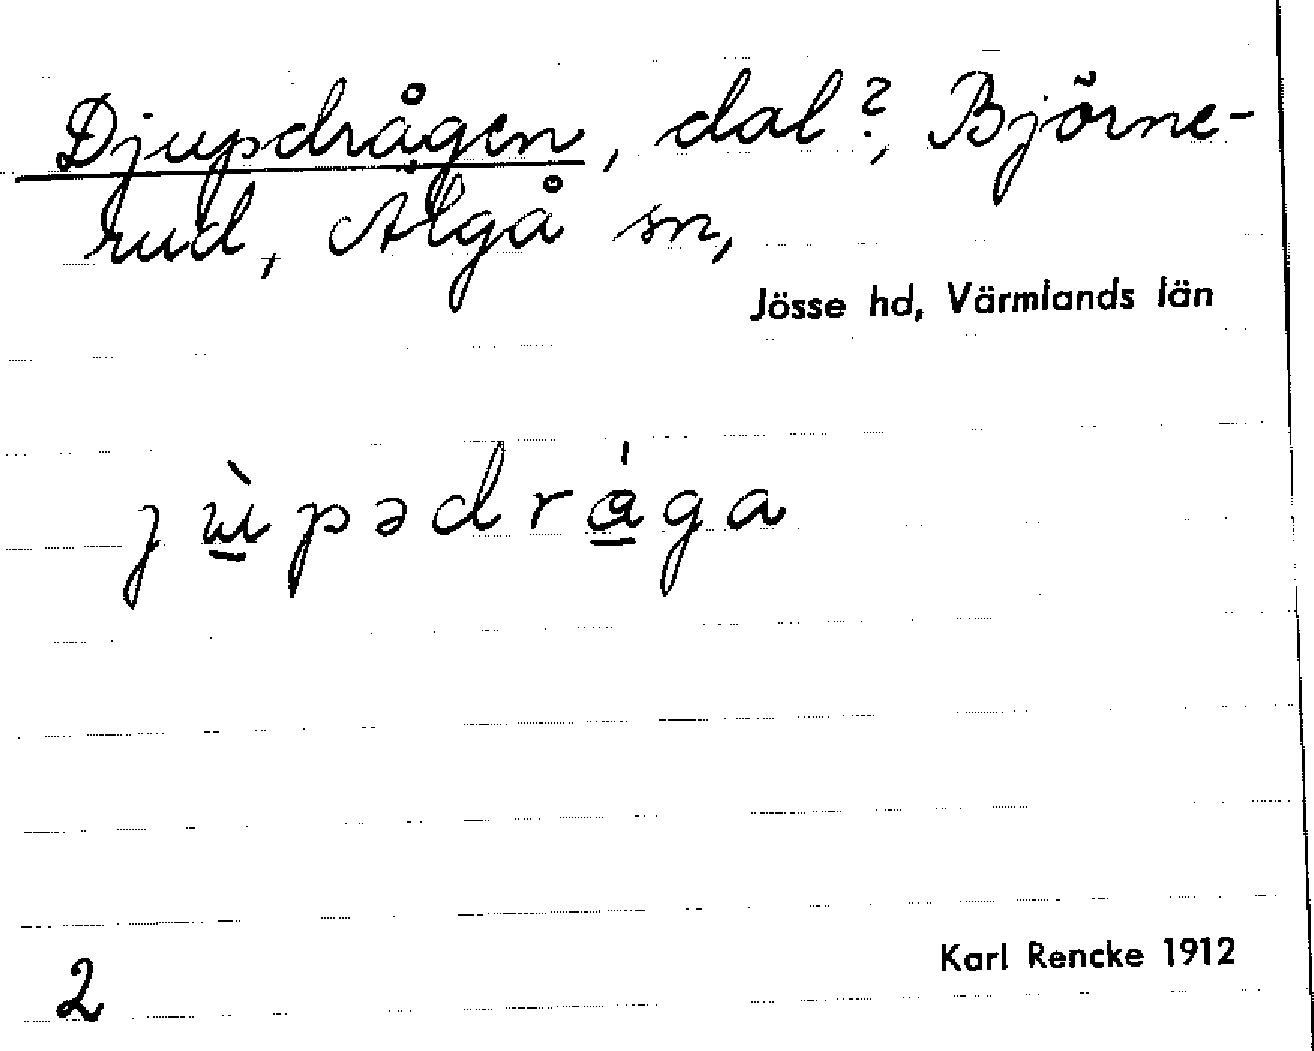 Djupdrågen, dal?, Björne-
rud, Älgå sn,
Jösse hd, Värmlands län
jùpədrága
Karl Rencke 1912
2